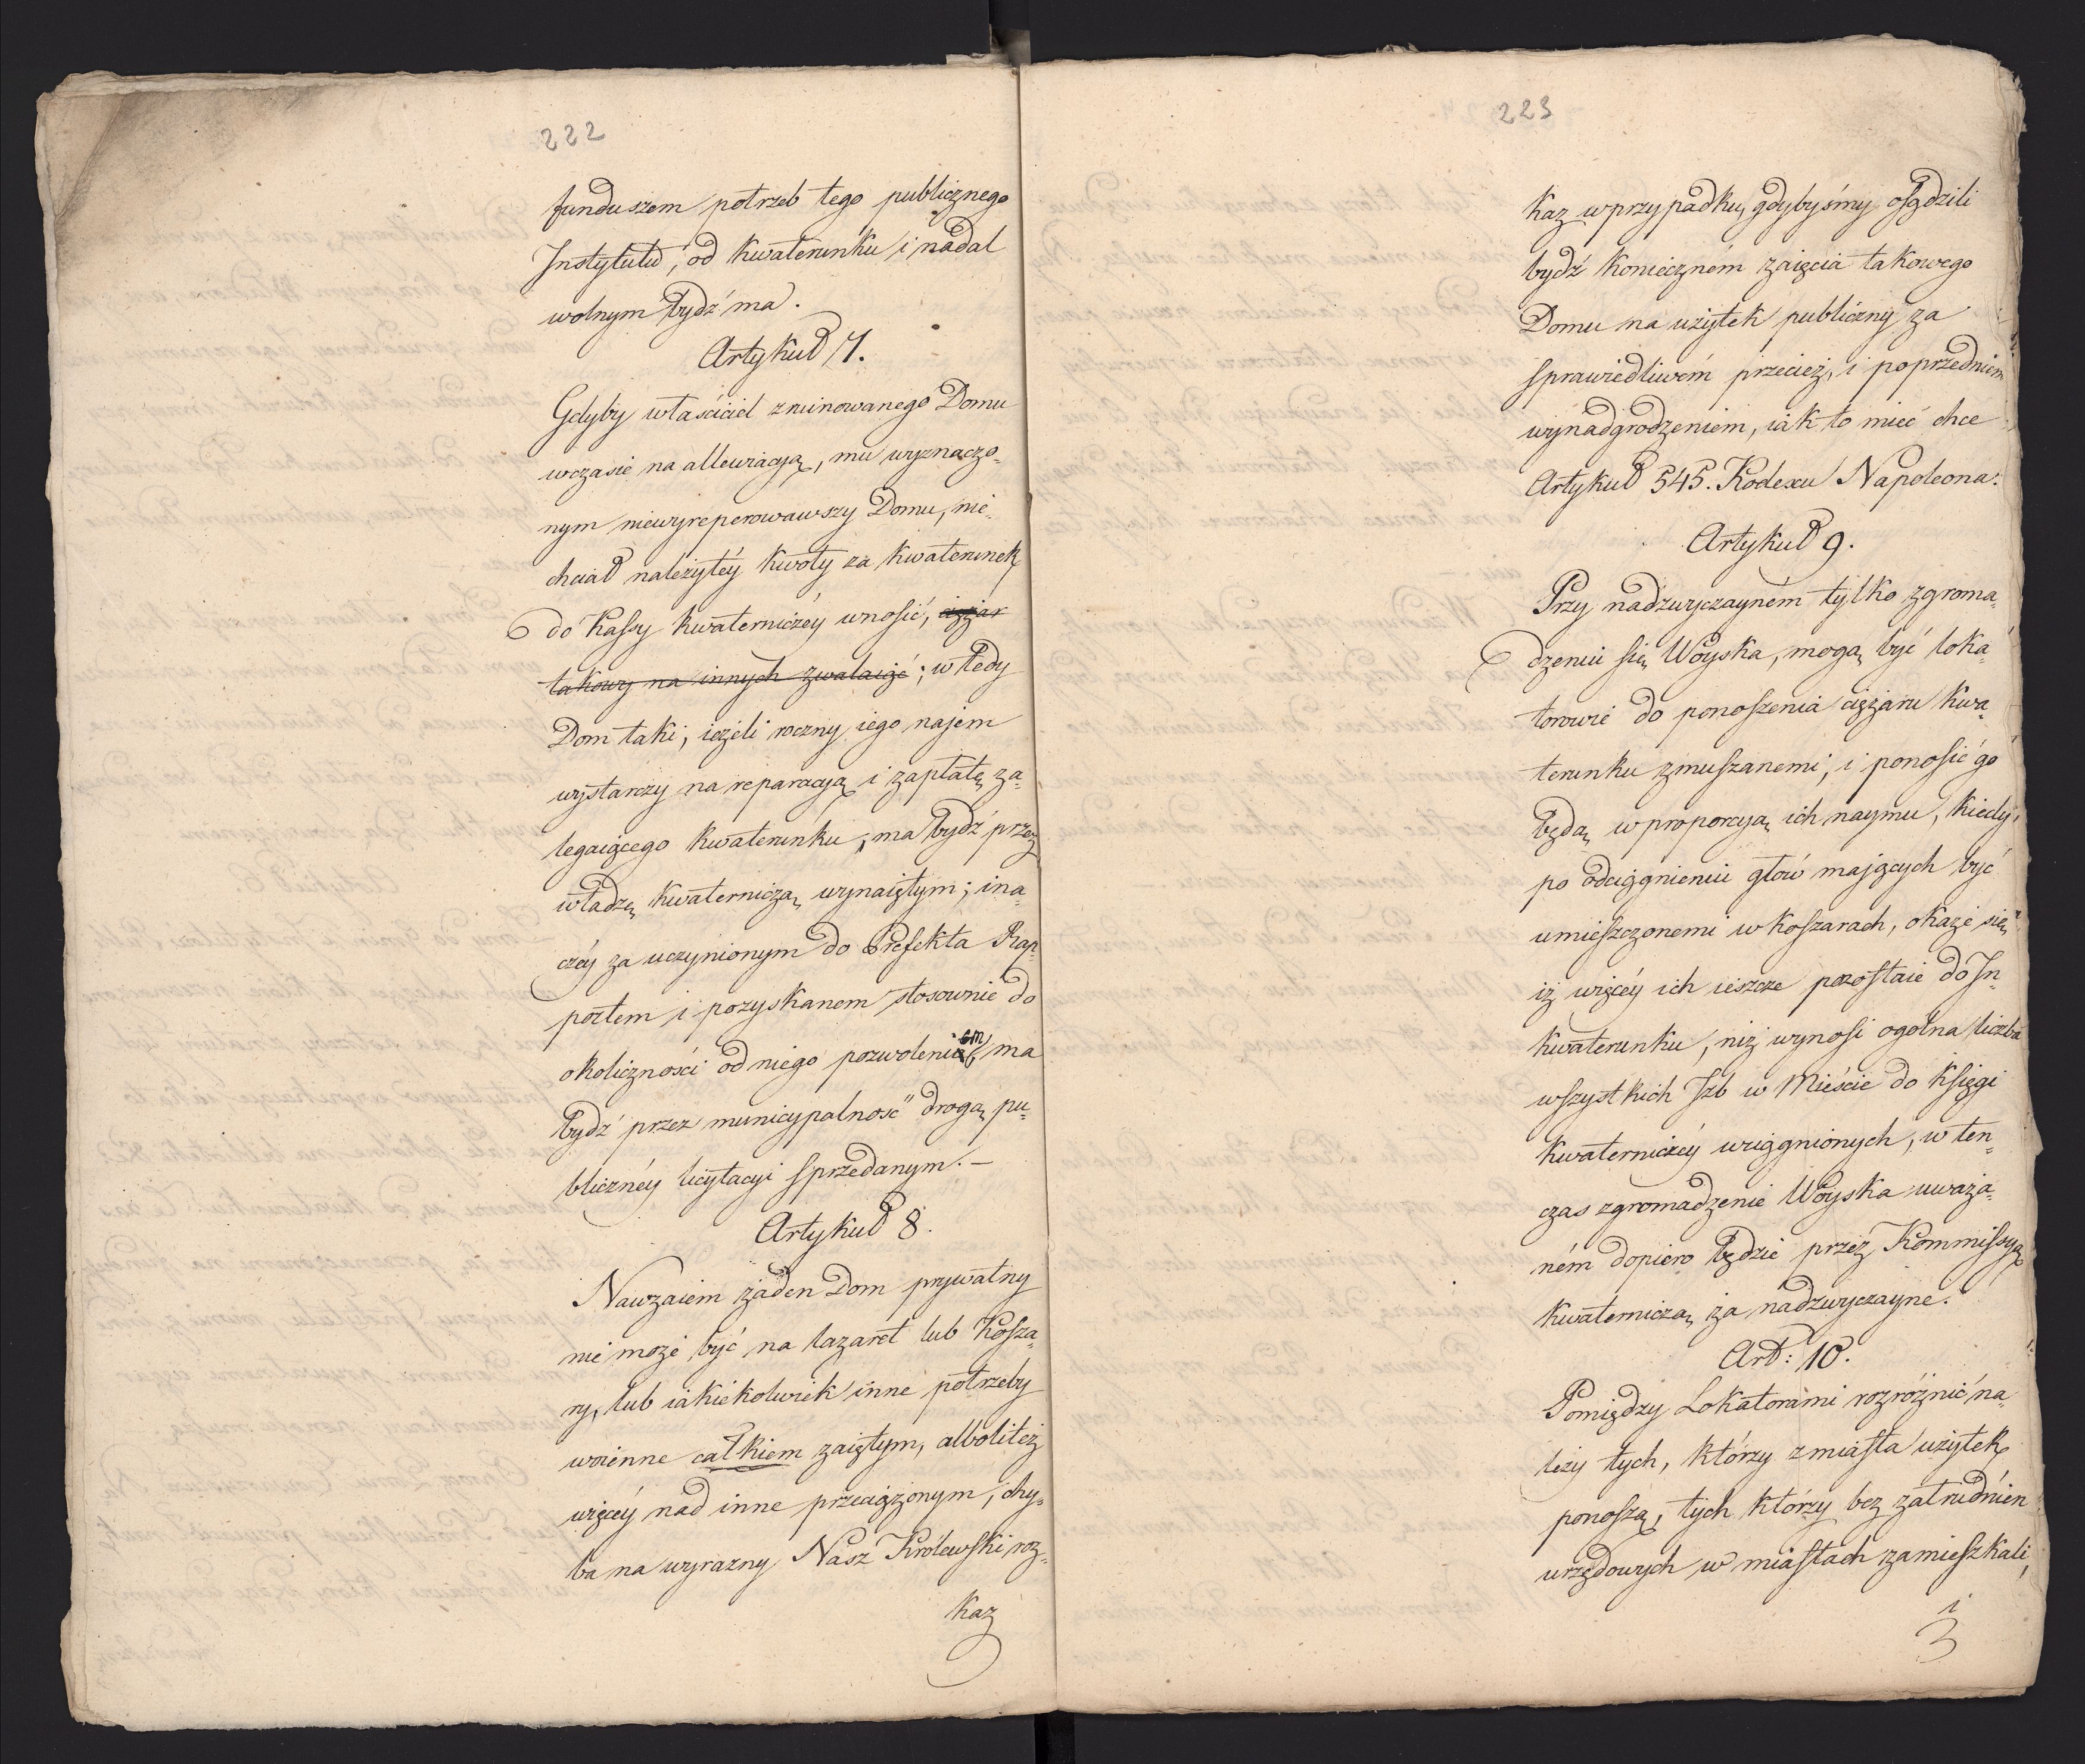 222
funduszem potrzeb tego publicznego
Instytutu, od kwaterunku i nadal
wolnym bydź ma.
Artykuł 7.
Gdyby właściciel zruinowanego Domu
wczasie na allewiacyą, mu wyznaczo-
nym niewyreperowawszy Domu, nie-
chciał należytéy kwoty za kwaterunek
do Kassy kwaterniczéy wnosić, ciężar
takowy na innych zwalaiąc; wtedy
Dom taki, ieżeli roczny iego najem
wystarczy na reparacyą i zapłatę za-
legaiącego kwaterunku, ma bydź przez
władzę kwaterniczą wynaiętym; ina-
czéy za uczynionym do Prefekta Rap-
portem i pozyskanem stosownie do
okoliczności od niego pozwoleniem, ma
bydź przez municypalność drogą pu-
blicznéy licytacyi sprzedanym. —
Artykuł 8.
Nawzaiem żaden Dom prywatny
nie może być na lazaret lub Kosza-
ry, lub iakiekolwiek inne potrzeby
woienne całkiem zaiętym, albo li też
więcéy nad inne przeciążonym, chy-
ba na wyrazny Nasz Królewski roz-
kaz
223
kaz wprzypadku, gdybyśmy osądzili
bydź konieczném zaięcia takowego
Domu na użytek publiczny za
sprawiedliwém przecież, i poprzedniem
wynadgrodzeniem, iak to mieć chce
Artykuł 545. Kodexu Napoleona.
Artykuł 9.
Przy nadzwyczayném tylko zgroma-
dzeniu się Woyska, mogą być loka-
torowie do ponoszenia ciężaru kwa-
terunku zmuszanemi, i ponosić go
będą w proporcyą ich naymu, kiedy,
po odciągnieniu głów mających być
umieszczonemi w koszarach, okaże się,
iż więcéy ich ieszcze pozostaie do In-
kwaterunku, niż wynosi ogólna liczba
wszystkich Izb w Mieście do księgi
kwaterniczéy wciągnionych, w ten-
czas zgromadzenie Woyska uważa-
ném dopiero będzie przez Kommissyą
kwaterniczą za nadzwyczayne.
Art: 10.
Pomiędzy Lokatorami rozróżnić na-
leży tych, którzy z miasta użytek
ponoszą, tych którzy bez zatrudnien
urzędowych w miastach zamieszkali,
i